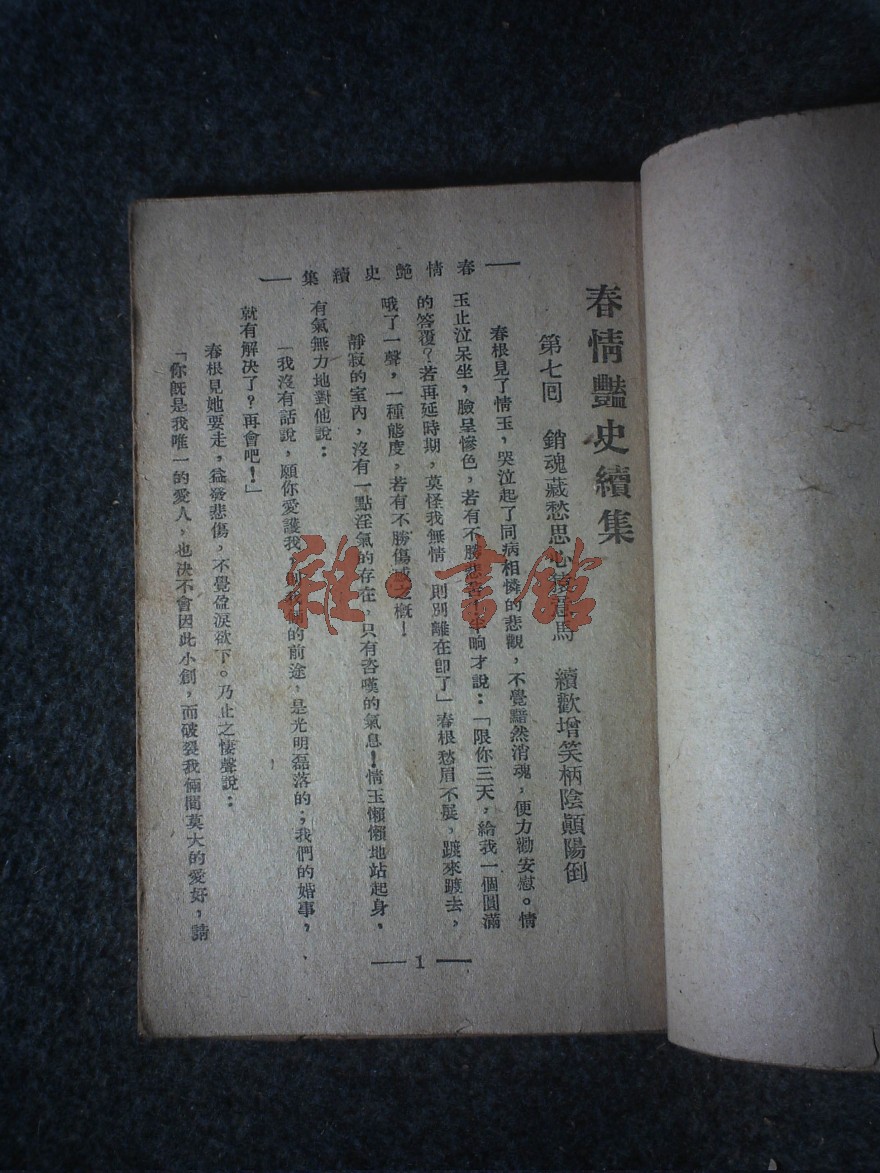 春情豔史續集
第七回　銷魂藏愁思心猿意馬　續歡增笑柄陰顚陽倒
春情艷史續集
春根見了情玉，哭泣起了同病相憐的悲觀，不覺黯然消魂，便力勸安慰。情
玉止泣呆坐，臉呈慘色，若有不勝悲苦！半晌才說：「限你三天，給我一個圓滿
的答覆？若再延時期，莫怪我無情　則別離在卽了」春根愁眉不展，踱來踱去，
哦了一聲，一種態度，若有不勝傷感之槪！
靜寂的室內，沒有一點淫氣的存在，只有咨嘆的氣息！情玉懶懶地站起身，
有氣無力地對他說：
「我沒有話說，願你愛護我，則我倆的前途，是光明磊落的；我們的婚事，
就有解决了？再會吧！」
春根見她要走，益發悲傷，不覺盈淚欲下。乃止之悽聲說：
「你旣是我唯一的愛人，也决不會因此小創，而破裂我倆間莫大的愛好，請
1
雅·書館